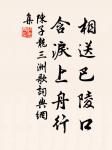 相送巴陵口
含淚上舟行
陳子龍三洲歌詞典網
集